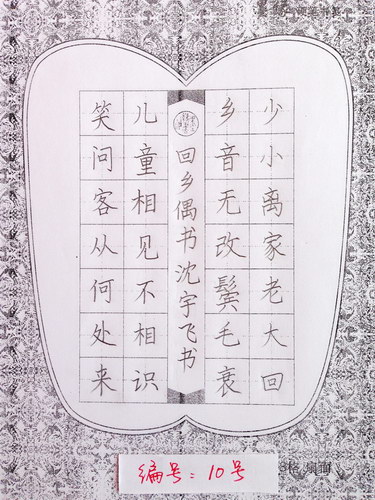 少小离家老大回
乡音无改鬓毛衰
回乡偶书沈宇飞书
儿童相见不相识
笑问客从何处来
编号：10号